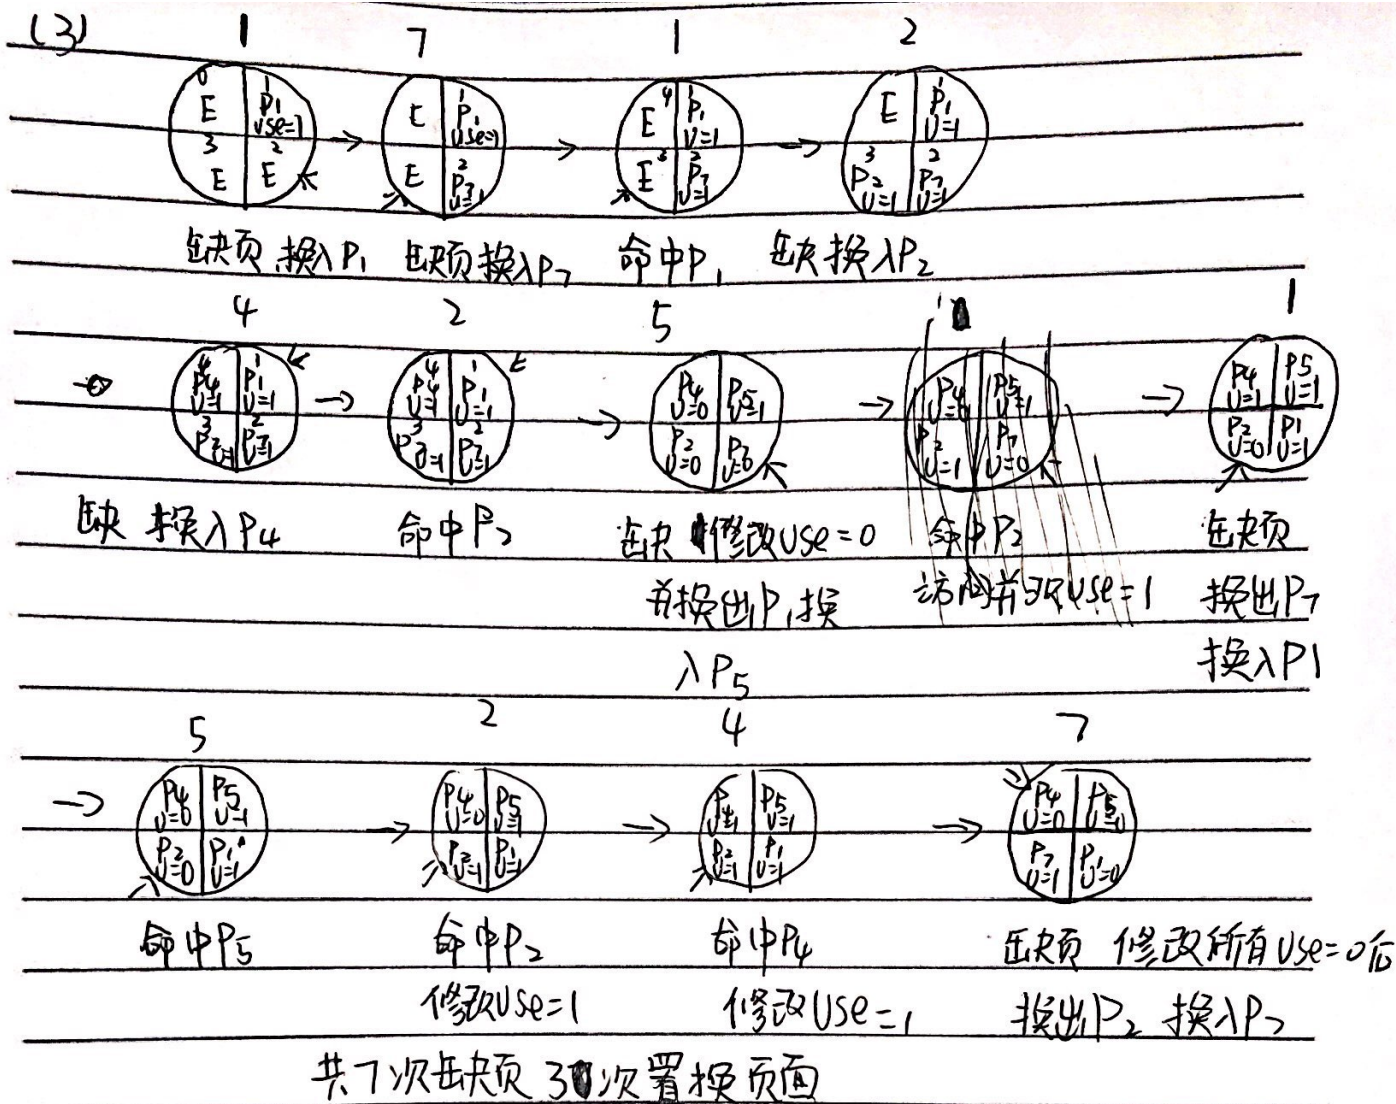 (3) 1 7 1 2
0 E 1 P1 use=1 3 E 2 E
E 1 P1 use=1 E 2 P7 u=1
E 4 1 P1 u=1 E 3 2 P7 u=1
E 1 P1 u=1 3 P2 u=1 2 P7 u=1
缺页 换入P1 缺页换入P7 命中P1 缺换入P2
4 2 5 1
4 P4 u=1 1 P1 u=1 3 P2 u=1 2 P7 u=1
4 P4 u=1 1 P1 u=1 3 P2 u=1 2 P7 u=1
P4 u=0 P5 u=1 P2 u=0 P7 u=0
P4 u=0 P5 u=1 P2 u=1 P7 u=0
P4 u=1 P5 u=1 P2 u=0 P1 u=1
缺 换入P4 命中P2 缺 修改use=0 命中P2 缺页
并换出P1换 访问并改use=1 换出P7
入P5 换入P1
5 2 4 7
P4 u=0 P5 u=1 P2 u=0 P1 u=1
P4 u=0 P5 u=1 P2 u=1 P1 u=1
P4 u=1 P5 u=1 P2 u=1 P1 u=1
P4 u=0 P5 u=0 P7 u=1 P1 u=0
命中P5 命中P2 命中P4 缺页 修改所有use=0后
修改use=1 修改use=1 换出P2 换入P7
共7次缺页 3次置换页面